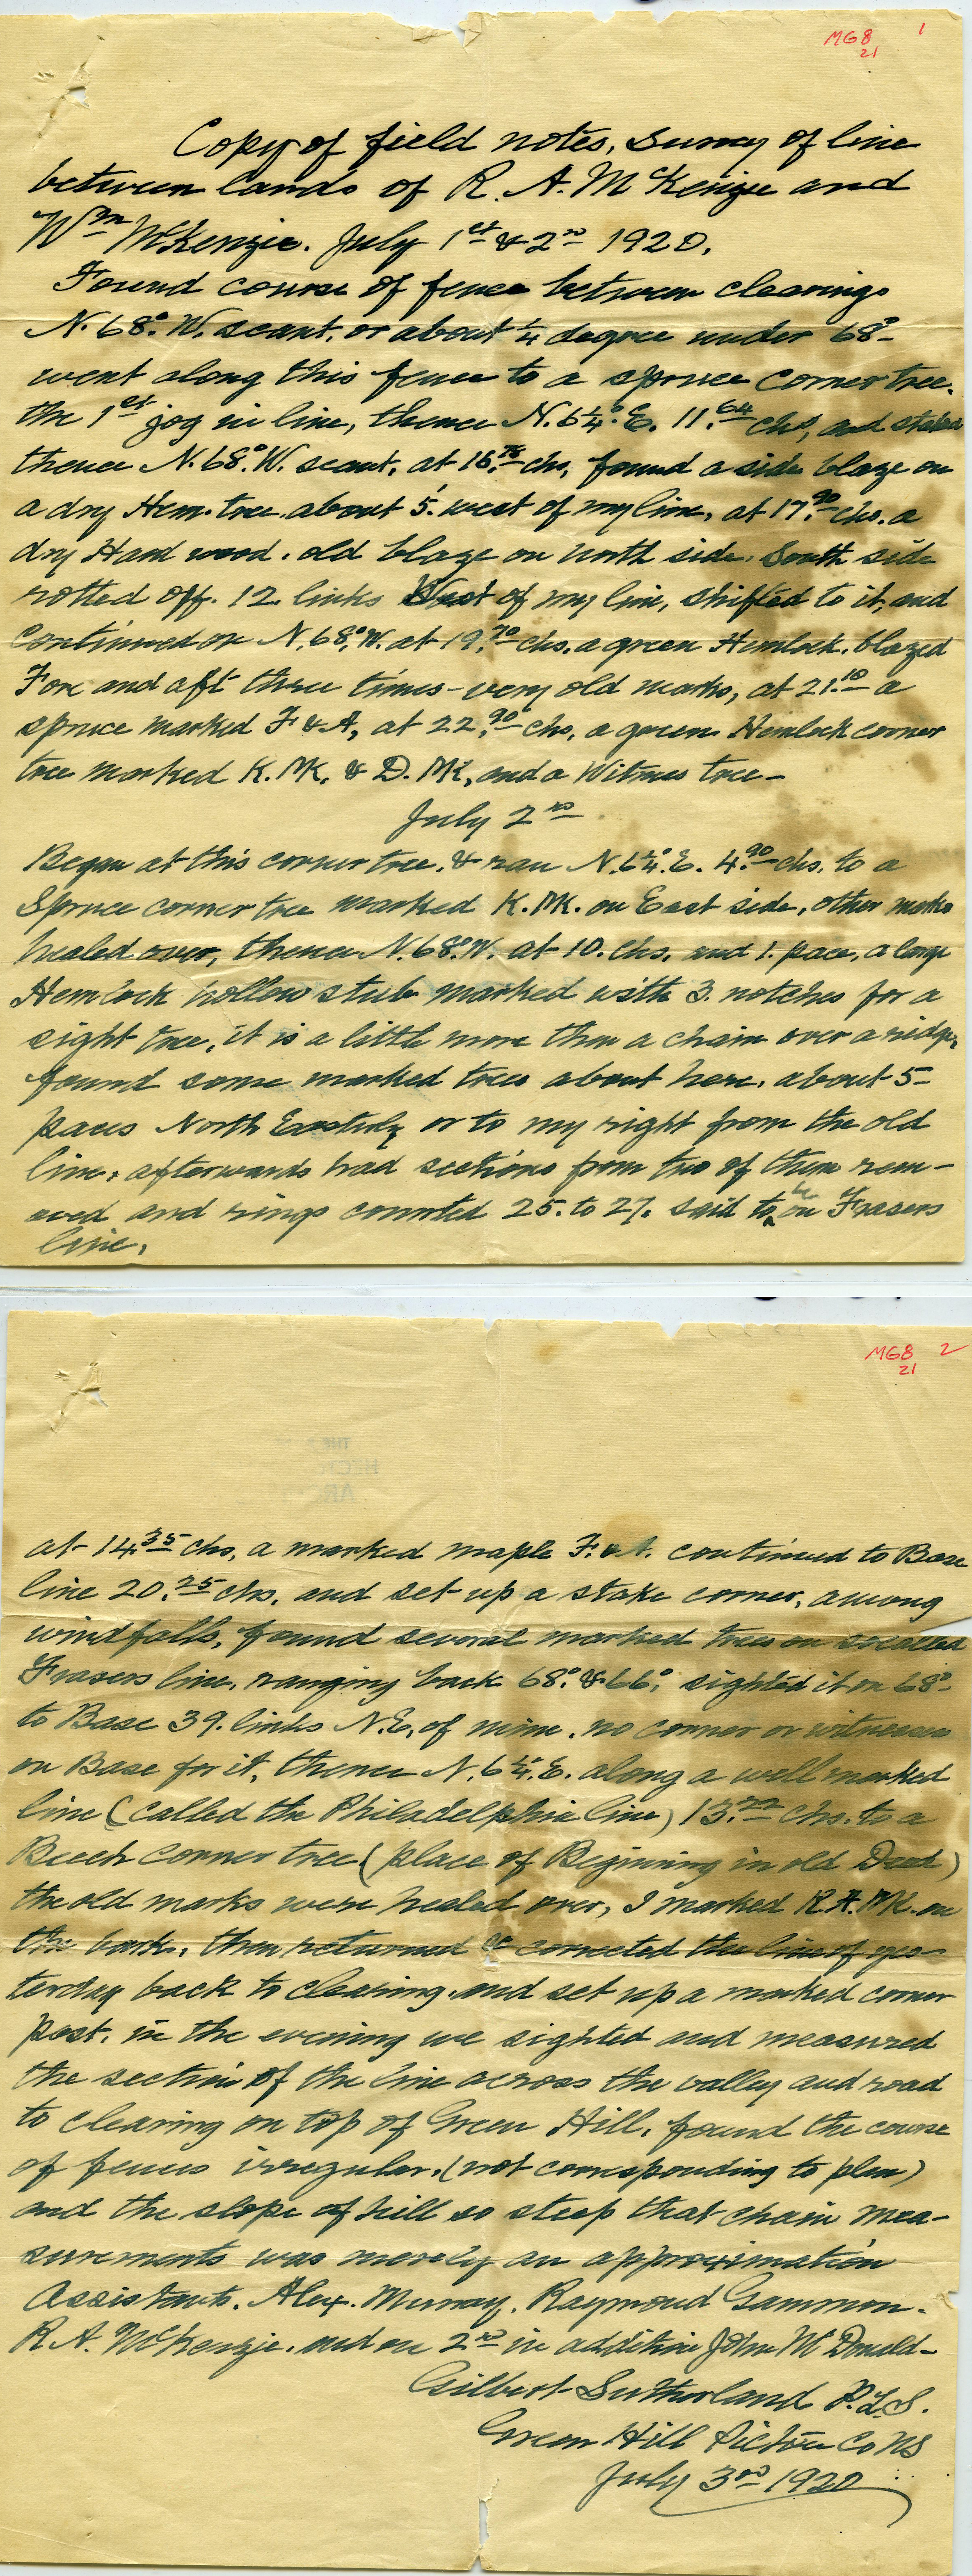 MG8 1
21
Copy of field notes, Survey of line
between lands of R. A. McKenzie and
Wm McKenzie. July 1st & 2nd 1920.
Found course of fence between clearings
N. 68°. W. scant, or about 1/4 degree under 68°-
went along this fence to a spruce corner tree.
the 1st jog in line, thence N. 6 1/4°. E. 11.64 chs, and staked
thence N. 68°. W. scant, at 16.78 chs, found a side blaze on
a dry Hem. tree. about 5' west of my line, at 17.90 chs. a
dry Hard wood. old blaze on north side. South side
rotted off. 12. links West of my line, shifted to it, and
continued on N. 68°. W. at 19.70 chs. a green Hemlock. blazed
Fore and aft three times - very old marks, at 21.10 a
spruce marked F & A, at 22.90 chs, a green Hemlock corner
tree marked K. MK. & D. MK, and a Witness tree -
July 2nd
Began at this corner tree. & ran N. 6 1/4°. E. 4.90 chs. to a
Spruce corner tree marked K. MK. on East side, other marks
healed over, thence N. 68°. W. at 10. chs. and 1. pace, a large
Hemlock hollow stub marked with 3. notches for a
sight tree, it is a little more than a chain over a ridge,
found some marked trees about here, about 5-
paces North Easterly or to my right from the old
line, afterwards had sections from two of them rem-
oved and rings counted 25. to 27. said to be on Frasers
line.
MG8 2
21
at 14.35 chs, a marked maple F. & A. continued to Base
line 20.25 chs. and set up a stake corner, among
windfalls, found several marked trees on socalled
Frasers line, ranging back 68°. & 66°, sighted it on 68°-
to Base 39. links N.E. of mine. no corner or witnesses
on Base for it, thence N. 6 1/4°. E. along a well marked
line (called the Philadelphia line) 13.22 chs. to a
Beech corner tree (place of Begining in old Deed)
the old marks were healed over, I marked R. A. MK. on
the bark, then returned & corrected the line of yes-
terday back to clearing, and set up a marked corner
post. in the evening we sighted and measured
the section of the line across the valley and road
to clearing on top of Green Hill, found the course
of fences irregular, (not corresponding to plan)
and the slope of hill so steep that chain mea-
surements was merely an approximation
Assistants. Alex. Murray, Raymond Gammon.
R. A. McKenzie, and on 2nd in addition John McDonald-
Gilbert Sutherland P.L.S.
Green Hill Pictou Co NS
July 3rd 1920